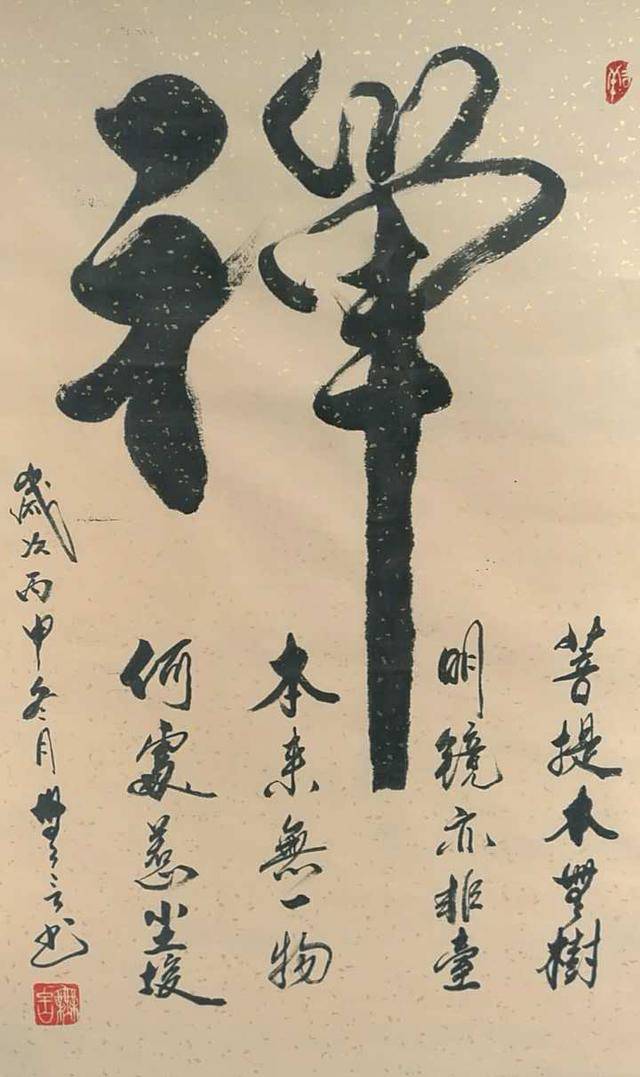 禪
菩提本無樹
明鏡亦非臺
本來無一物
何處惹塵埃
歲次丙申冬月無言書